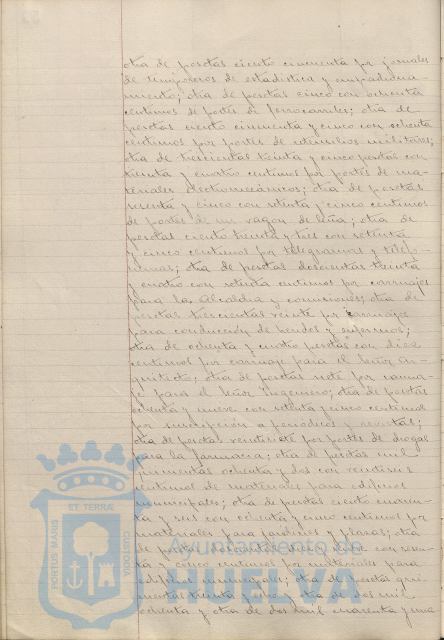 otra de pesetas ciento cincuenta por jornales
de temporeros de estadistica y empadrona-
miento; otra de pesetas cinco con ochenta
centimos de portes de ferrocarriles; otra de
pesetas ciento cincuenta y cinco con ochenta
centimos por portes de utensilios militares;
otra de trescientas treinta y cinco pesetas con
treinta y cuatro centimos por portes de ma-
teriales electromecánicos; otra de pesetas
sesenta y cinco con setenta y cinco centimos
de portes de un vagon de leña; otra de
pesetas ciento treinta y tres con setenta
y cinco centimos por telegramas y telefo-
nemas; otra de pesetas doscientas treinta
y cuatro con setenta centimos por carruajes
para la Alcaldia y comisiones; otra de
pesetas trescientas veinte por carruajes
para conducción de heridos y enfermos;
otra de ochenta y cuatro pesetas con diez
centimos por carruaje para el Señor Ar-
quitecto; otra de pesetas siete por carrua-
je para el Señor Ingeniero; otra de pesetas
ochenta y nueve con setenta y cinco centimos
por suscripción a periodicos y revistas;
otra de pesetas veintisiete por portes de drogas
para la farmacia; otra de pesetas mil
quinientas ochenta y dos con veintiseis
centimos de materiales para edificios
municipales; otra de pesetas ciento cuaren-
ta y seis con ochenta y cinco centimos por
materiales para jardines y plazas; otra
de pesetas con sesen-
ta y cinco centimos por materiales para
edificios municipales; otra de pesetas qui-
nientas treinta y una y otra de dos mil
ochenta y otra de dos mil cuarenta y una
PORTUS MARIS
ET TERRÆ
CUSTODIA
Ayuntamiento de
HUELVA